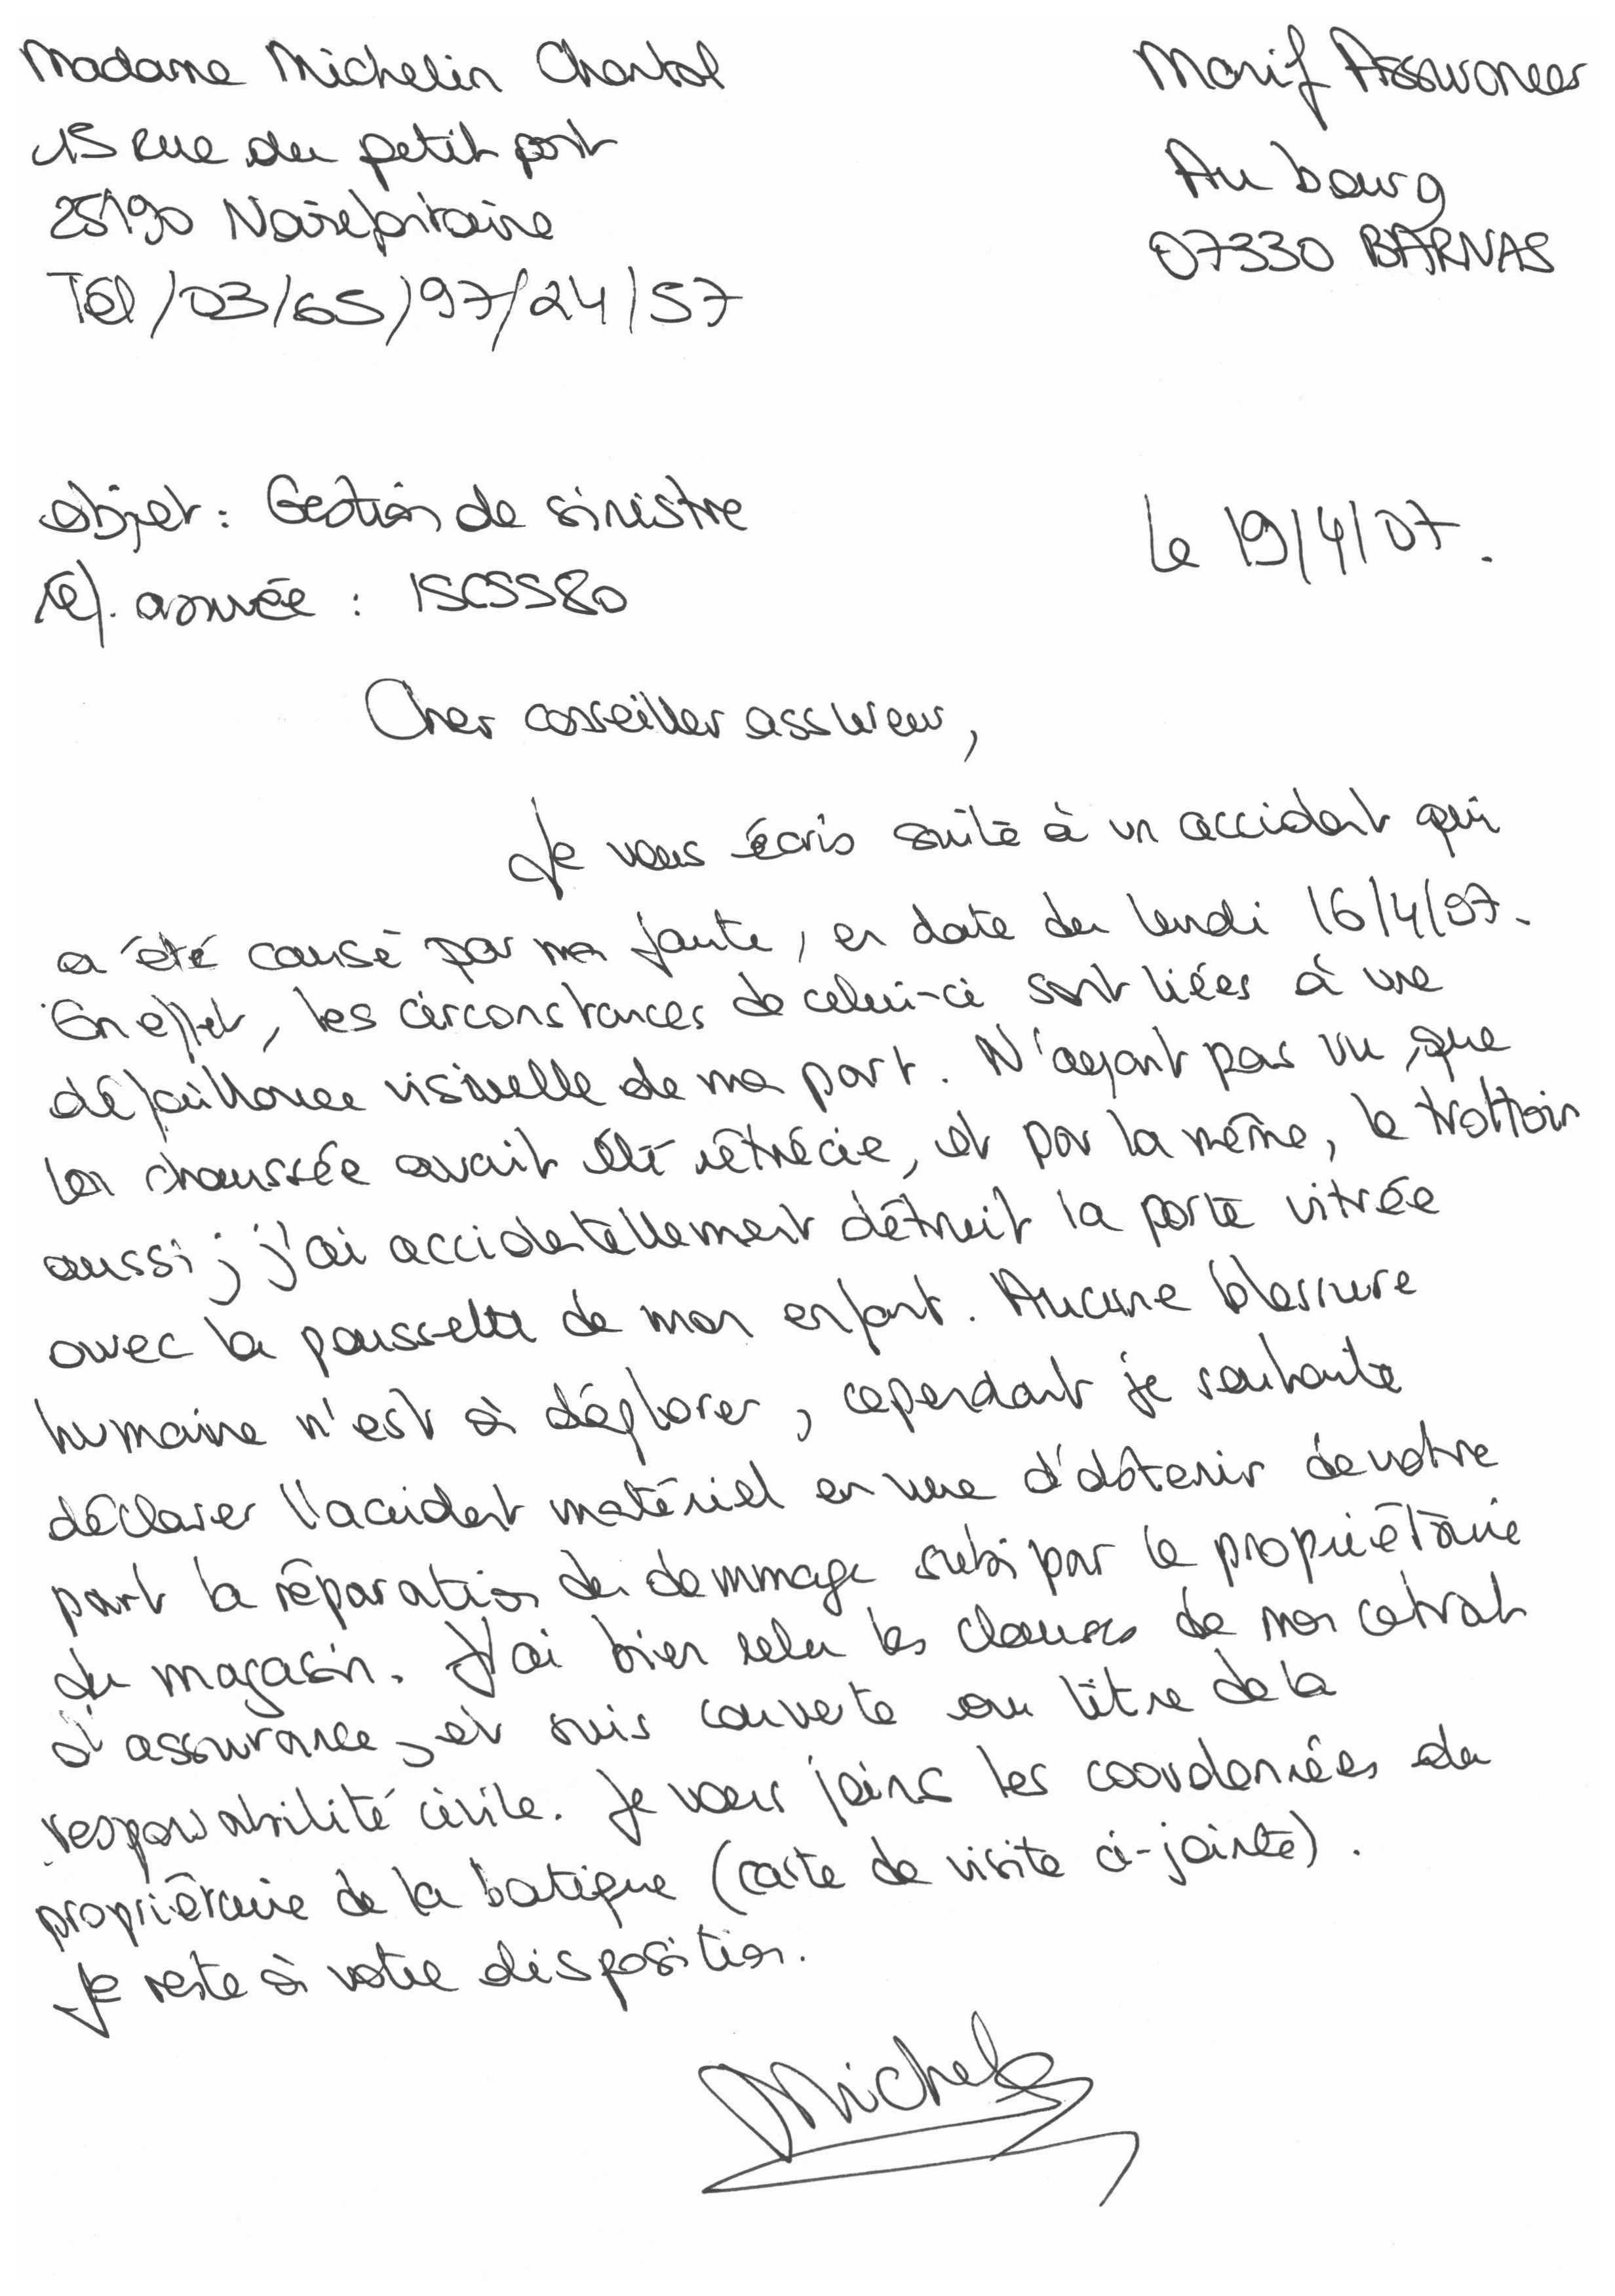 Madame Michelin Chantal
15 rue du petit pont
25190 Noirefontaine
Tél/03/65/97/24/57
Marif Assurances
Au bourg
07330 BARNAS
objet : Gestion de sinistre
réf. assurée : ISCSS80
le 19/4/07.
Cher conseiller assureur,
Je vous écris suite à un accident qui
a été causé par ma faute, en date du lundi 16/4/07.
En effet, les circonstances de celui-ci sont liées à une
défaillance visuelle de ma part. N'ayant pas vu que
la chaussée avait été rétrécie, et par la même, le trottoir
aussi ; j'ai accidentellement détruit la porte vitrée
avec la poussette de mon enfant. Aucune blessure
humaine n'est à déplorer, cependant je souhaite
déclarer l'accident matériel en vue d'obtenir de votre
part la réparation du dommage subi par le propriétaire
du magasin. J'ai bien relu les clauses de mon contrat
d'assurance, et suis couverte au titre de la
responsabilité civile. Je vous joins les coordonnées du
propriétaire de la boutique (carte de visite ci-jointe).
Je reste à votre disposition.